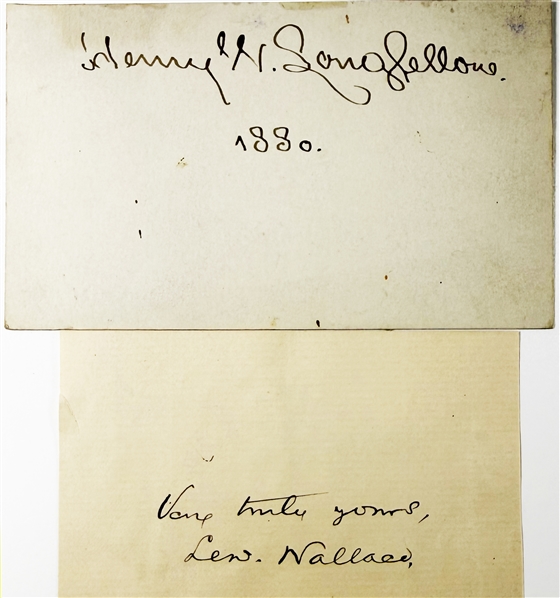 Henry W. Longfellow.
1880.
Very truly yours,
Lew. Wallace,